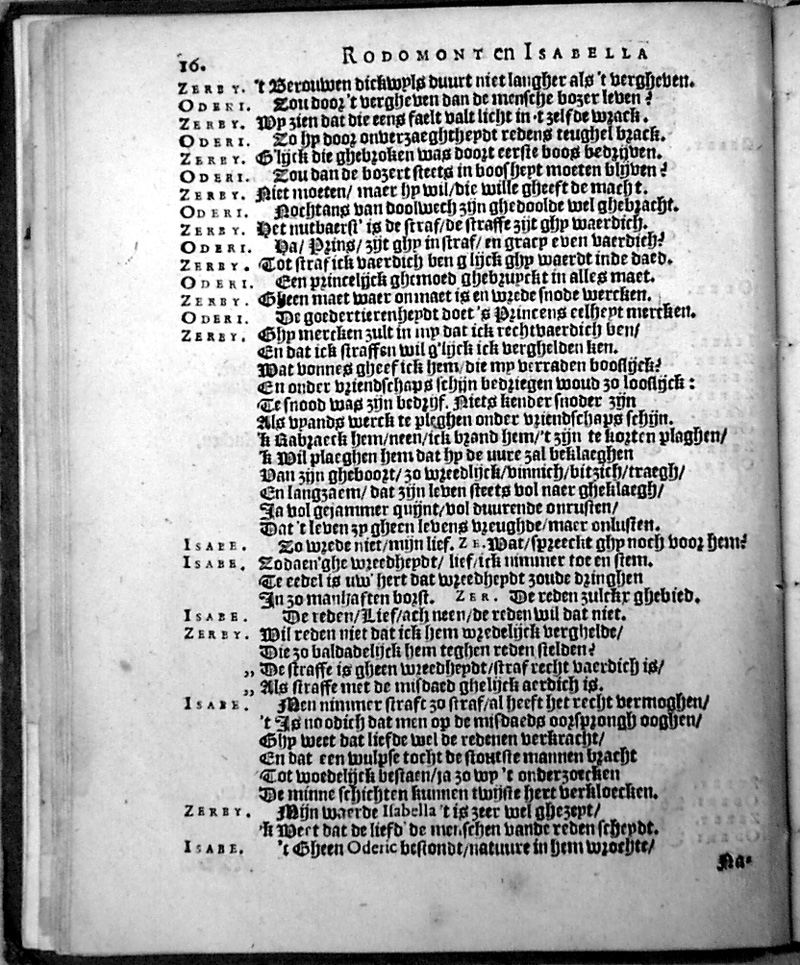 16. RODOMONT en ISABELLA
ZERBY. 't Berouwen dickwyls duurt niet langher als 't vergheven.
ODERI. Zou door 't vergheven dan de mensche bozer leven?
ZERBY. Wy zien dat die eens faelt valt licht in 't zelfde wrack.
ODERI. Zo hy door onverzaeghtheydt redens teughel brack.
ZERBY. G'lijck die ghebroken was doort eerste boos bedrijven.
ODERI. Zou dan de bozert steets in boosheyt moeten blijven?
ZERBY. Niet moeten/ maer hy wil/ die wille gheeft de macht.
ODERI. Nochtans van doolwech zijn ghedoolde wel ghebracht.
ZERBY. Het nutbaerst' is de straf/ de straffe zijt ghy waerdich.
ODERI. Ha/ Prins/ zijt ghy in straf/ en gracy even vaerdich?
ZERBY. Tot straf ick vaerdich ben g'lijck ghy waerdt inde daed.
ODERI. Een princelijck ghemoed ghebruyckt in alles maet.
ZERBY. Gheen maet waer onmaet is en wrede snode wercken.
ODERI. De goedertierenheydt doet 's Princens eelheyt mercken.
ZERBY. Ghy mercken zult in my dat ick rechtvaerdich ben/
En dat ick straffen wil g'lijck ick verghelden ken.
Wat vonnes gheef ick hem/ die my verraden booslijck?
En onder vriendschaps schijn bedriegen woud zo looslijck:
Te snood was zijn bedrijf. Niets kender snoder zijn
Als vyands werck te pleghen onder vriendschaps schijn.
'k Rabraeck hem/ neen/ ick brand hem/ 't zijn te korten plaghen/
'k Wil plaeghen hem dat hy de uure zal beklaeghen
Van zijn gheboort/ zo wreedlijck/ vinnich/ bitzich/ traegh/
En langzaem/ dat zijn leven steets vol naer gheklaegh/
Ja vol gejammer quijnt/ vol duurende onrusten/
Dat 't leven zy gheen levens vreughde/ maer onlusten.
ISABE. Zo wrede niet/ mijn lief. ZE. Wat/ spreeckt ghy noch voor hem?
ISABE. Zodaen'ghe wreedheydt/ lief/ ick nimmer toe en stem.
Te eedel is uw' hert dat wreedheydt zoude dringhen
In zo manhaften borst. ZER. De reden zulckx ghebied.
ISABE. De reden/ Lief/ ach neen/ de reden wil dat niet.
ZERBY. Wil reden niet dat ick hem wredelijck verghelde/
Die zo baldadelijck hem teghen reden stelden?
„ De straffe is gheen wreedheydt/ straf recht vaerdich is/
„ Als straffe met de misdaed ghelijck aerdich is.
ISABE. Men nimmer straft zo straf/ al heeft het recht vermoghen/
't Is noodich dat men op de misdaeds oorsprongh ooghen/
Ghy weet dat liefde wel de redenen verkracht/
En dat een wulpse tocht de stoutste mannen bracht
Tot woedelijck bestaen/ ja zo wy 't onderzoecken
De minne schichten kunnen twijste hert verkloecken.
ZERBY. Mijn waerde Isabella 't is zeer wel ghezeyt/
'k Weet dat de liefd' de menschen vande reden scheydt.
ISABE. 't Gheen Oderic bestondt/ natuure in hem wrochte/
Na-